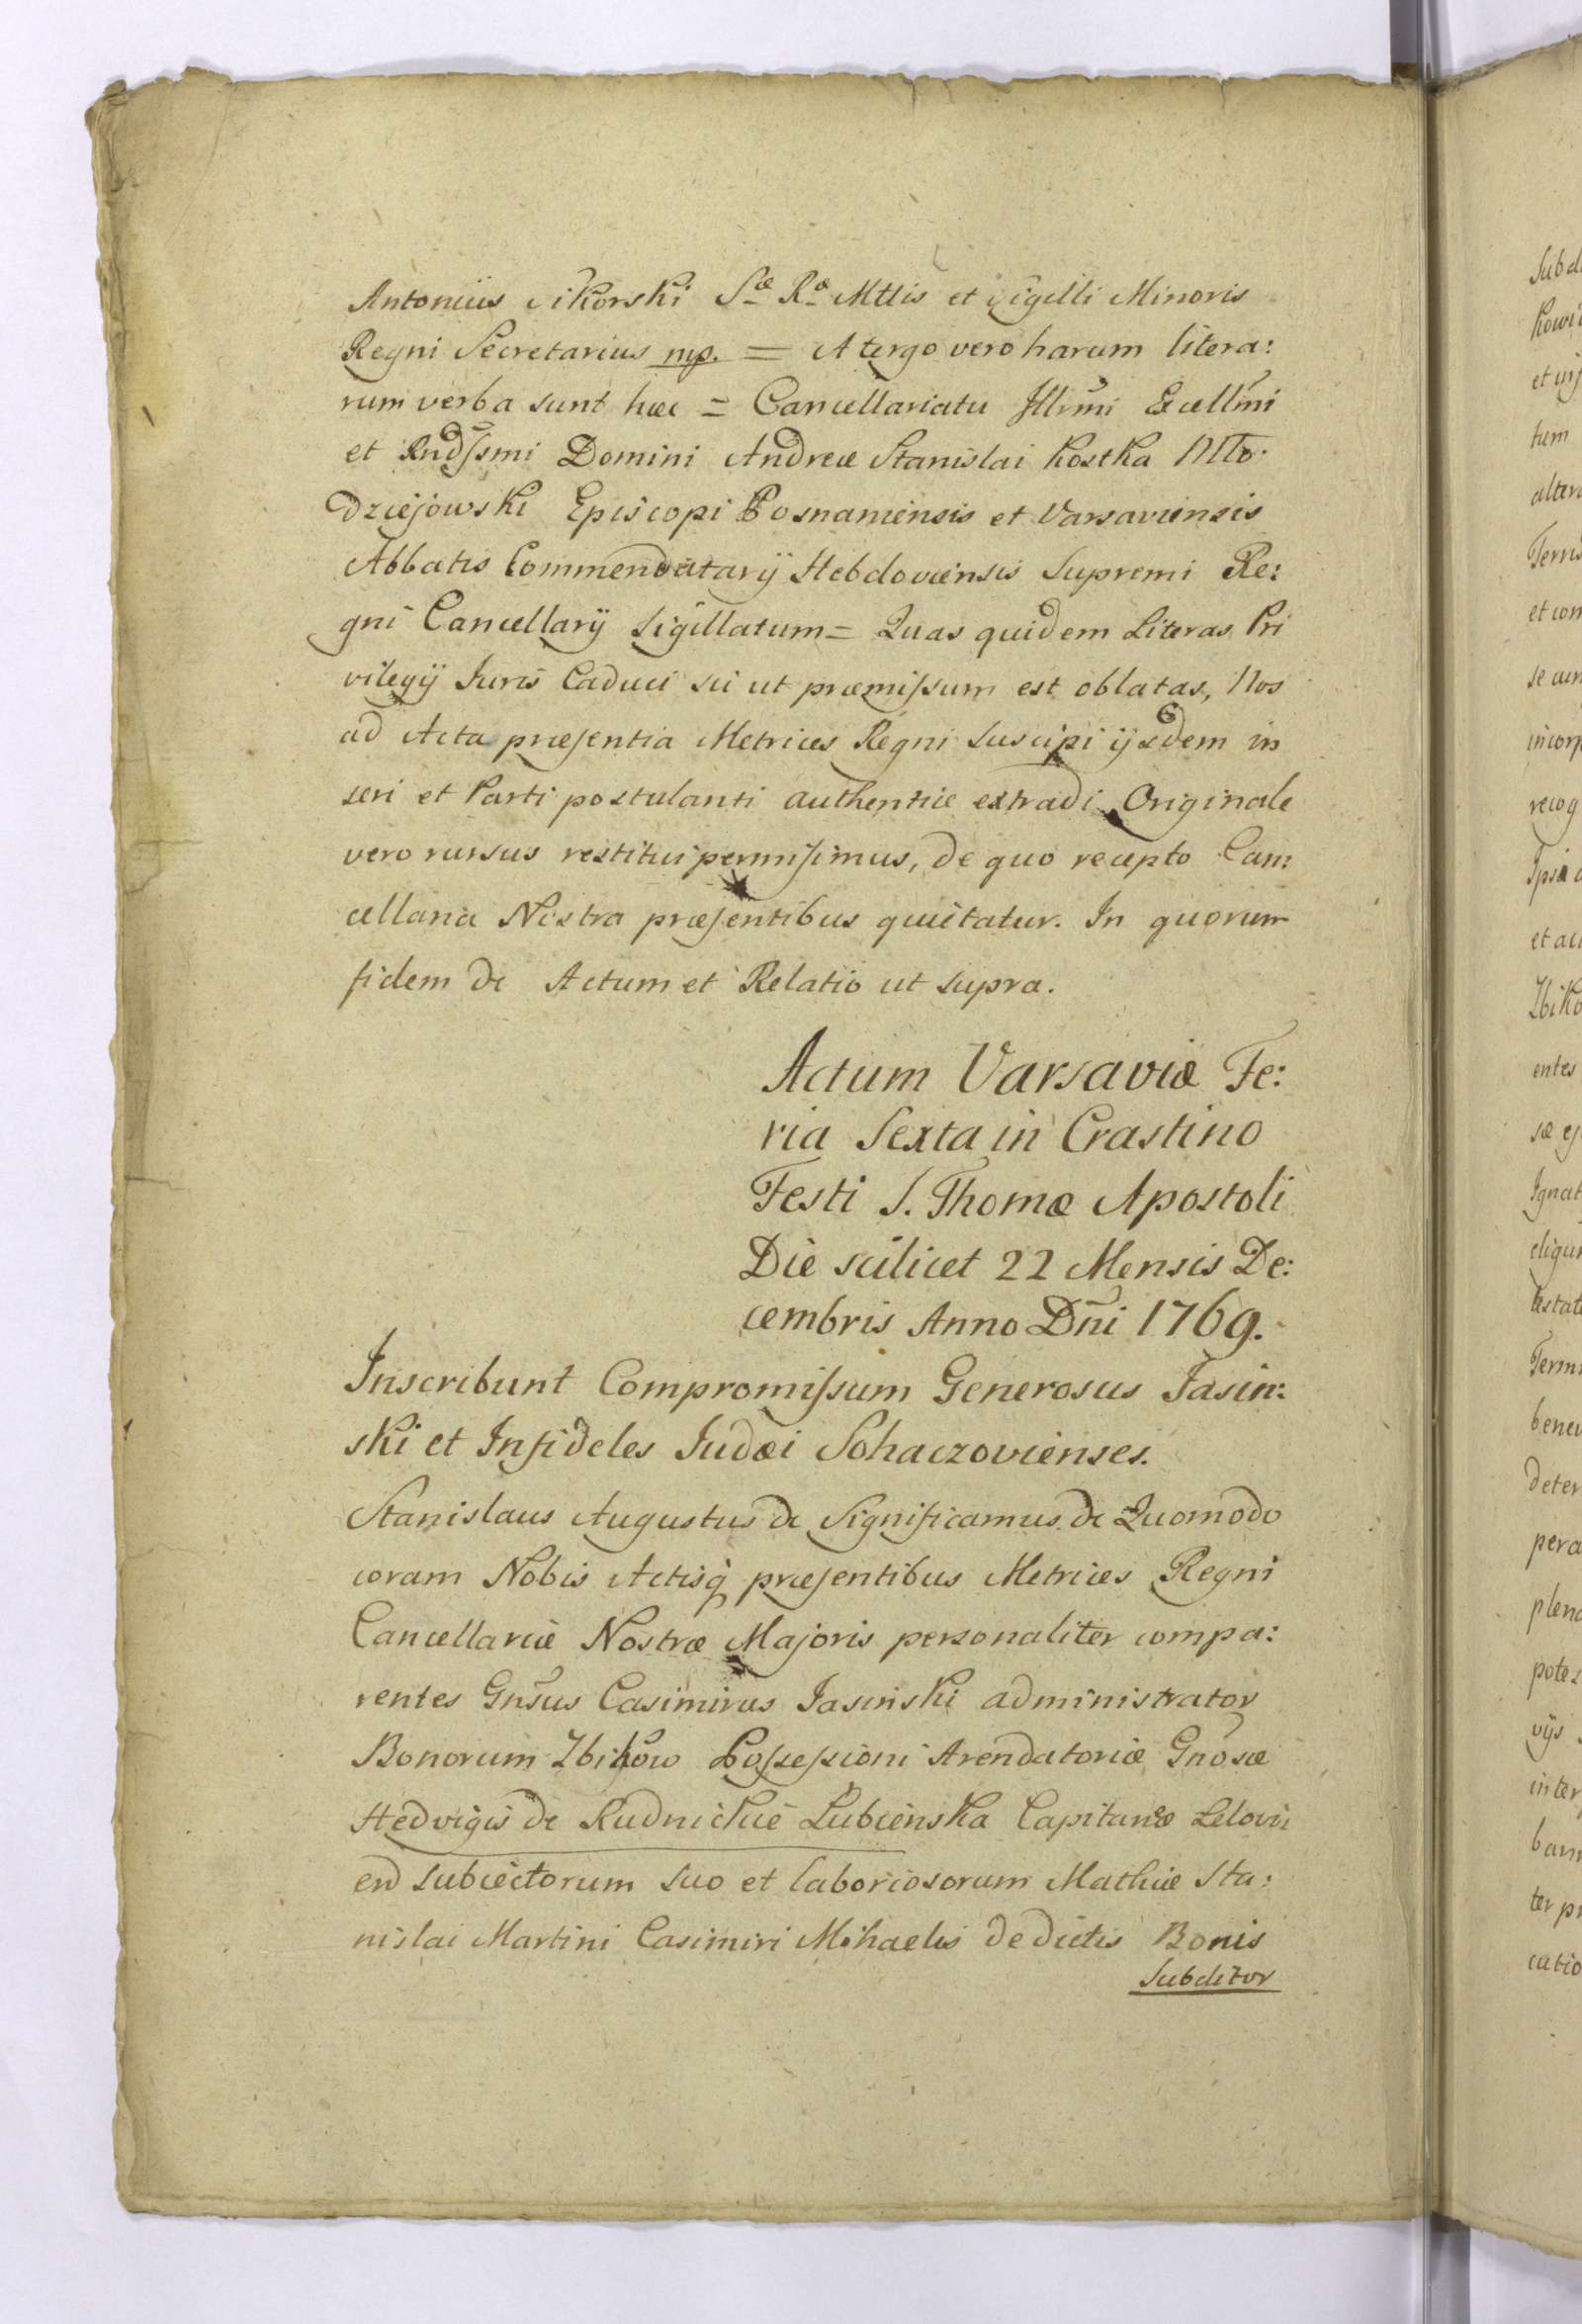 Antonius Sikorski Sæ Ræ Mttis et Sigilli Minoris
Regni Secretarius mp. = A tergo vero harum litera:
rum verba sunt hæc = Cancellariatu Illrmi Excellmi
et Rndſsmi Domini Andreæ Stanislai Kostka Mło:
dziejowski Episcopi Posnaniensis et Varsaviensis
Abbatis Commendatarij Hebdoviensis Supremi Re:
gni Cancellarij Sigillatum = Quas quidem Literas Pri
vilegij Juris Caduci sic ut præmiſsum est oblatas, Nos
ad Acta præſentia Metrices Regni suscipi ijsdem in
seri et Parti postulanti authentice extradi Originale
vero rursus restitui permiſimus, de quo recepto Can:
cellaria Nostra præſentibus quietatur. In quorum
fidem &c Actum et Relatio ut supra.
Actum Varsaviæ Fe:
ria Sexta in Crastino
Festi S. Thomæ Apostoli
Die scilicet 22 Mensis De:
cembris Anno Dñi 1769.
Inscribunt Compromiſsum Generosus Jasin:
ski et Infideles Judæi Sohaczovienses.
Stanislaus Augustus &c Significamus &c Quomodo
coram Nobis Actisq præſentibus Metrices Regni
Cancellariæ Nostræ Majoris personaliter compa:
rentes Gnsus Casimirus Jasinski administrator
Bonorum Zbikow Poſseſsioni Arendatoriæ Gnosæ
Hedvigis de Rudnickie Lubienska Capitanæ Lelovi
en subiectorum suo et laboriosorum Mathiæ Sta:
nislai Martini Casimiri Mihaelis de dictis Bonis
Subditor